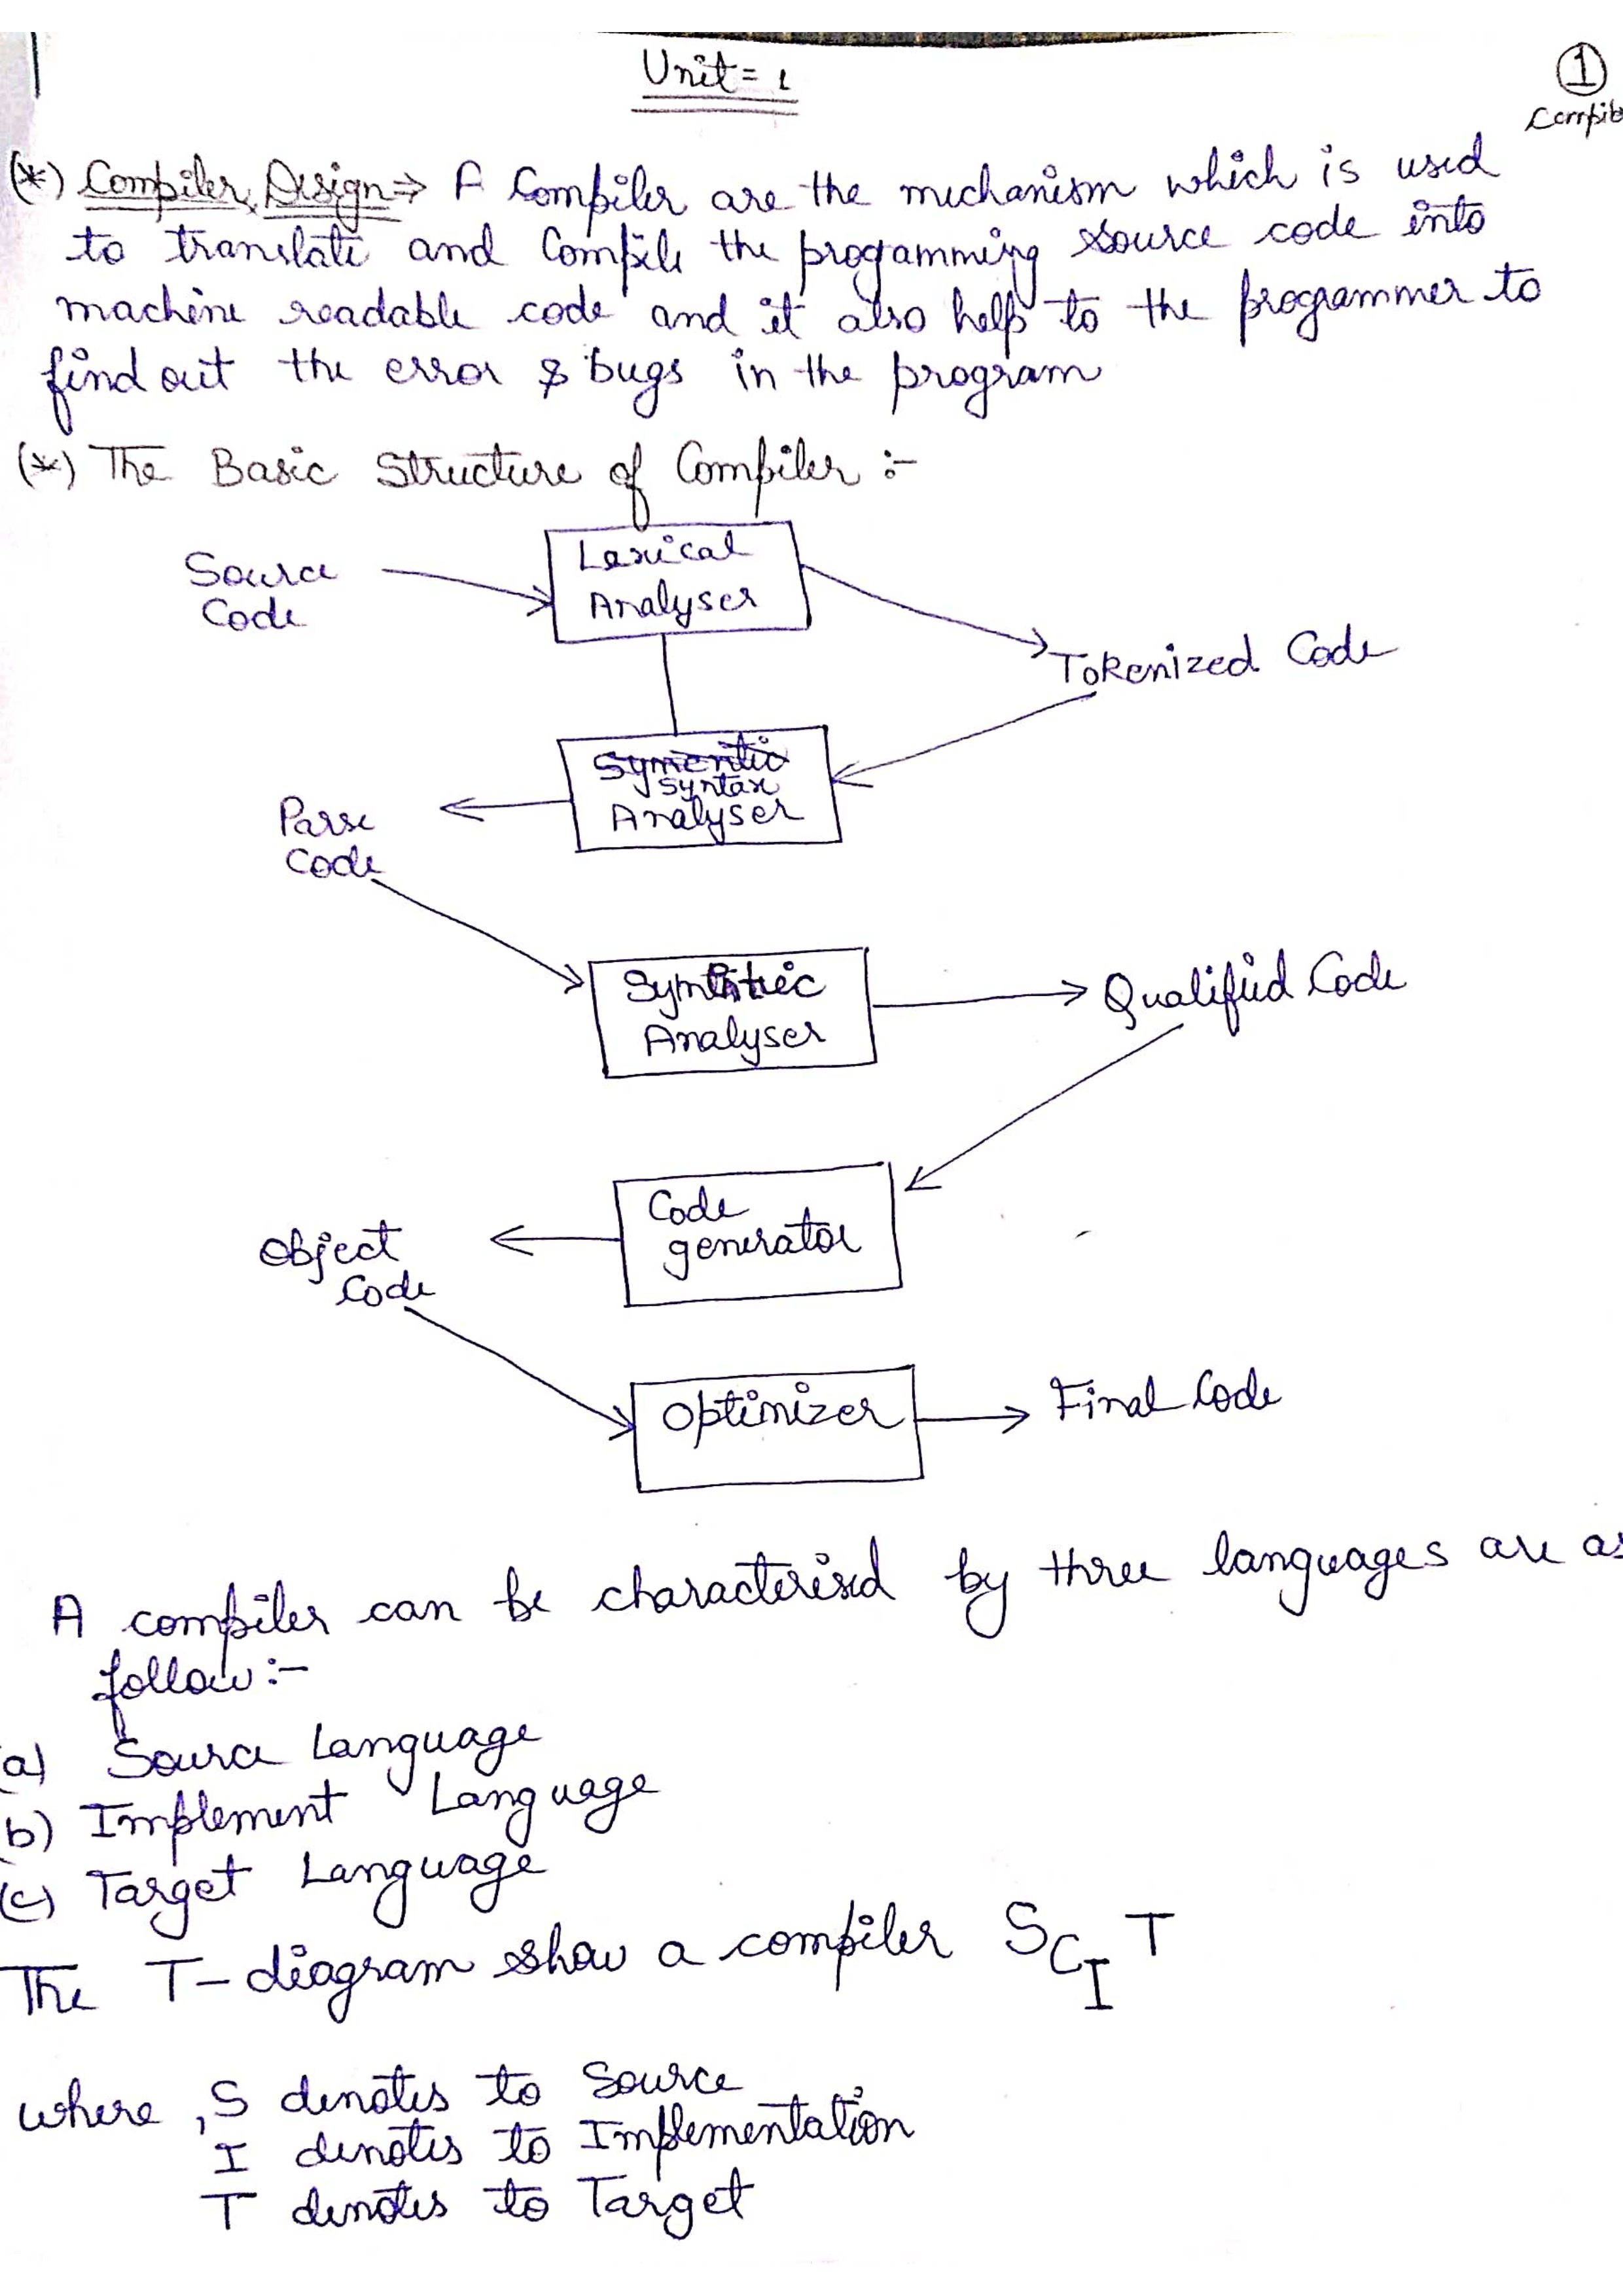 Unit = 1
1
(*) Compiler Design ⇒ A Compiler are the mechanism which is used
to translate and Compile the progamming source code into
machine readable code and it also help to the programmer to
find out the error & bugs in the program
(*) The Basic Structure of Compiler :-
Source
Code
Lexical
Analyser
Tokenized Code
Symentic
Syntax
Analyser
Parse
Code
Analyser
Qualified Code
Code
generator
Object
Code
Optimizer
Final Code
A compiler can be characterised by three languages are as
follow :-
(a) Source Language
(b) Implement Language
(c) Target Language
The T-diagram show a compiler SCIT
where, S denotes to Source
I denotes to Implementation
T denotes to Target